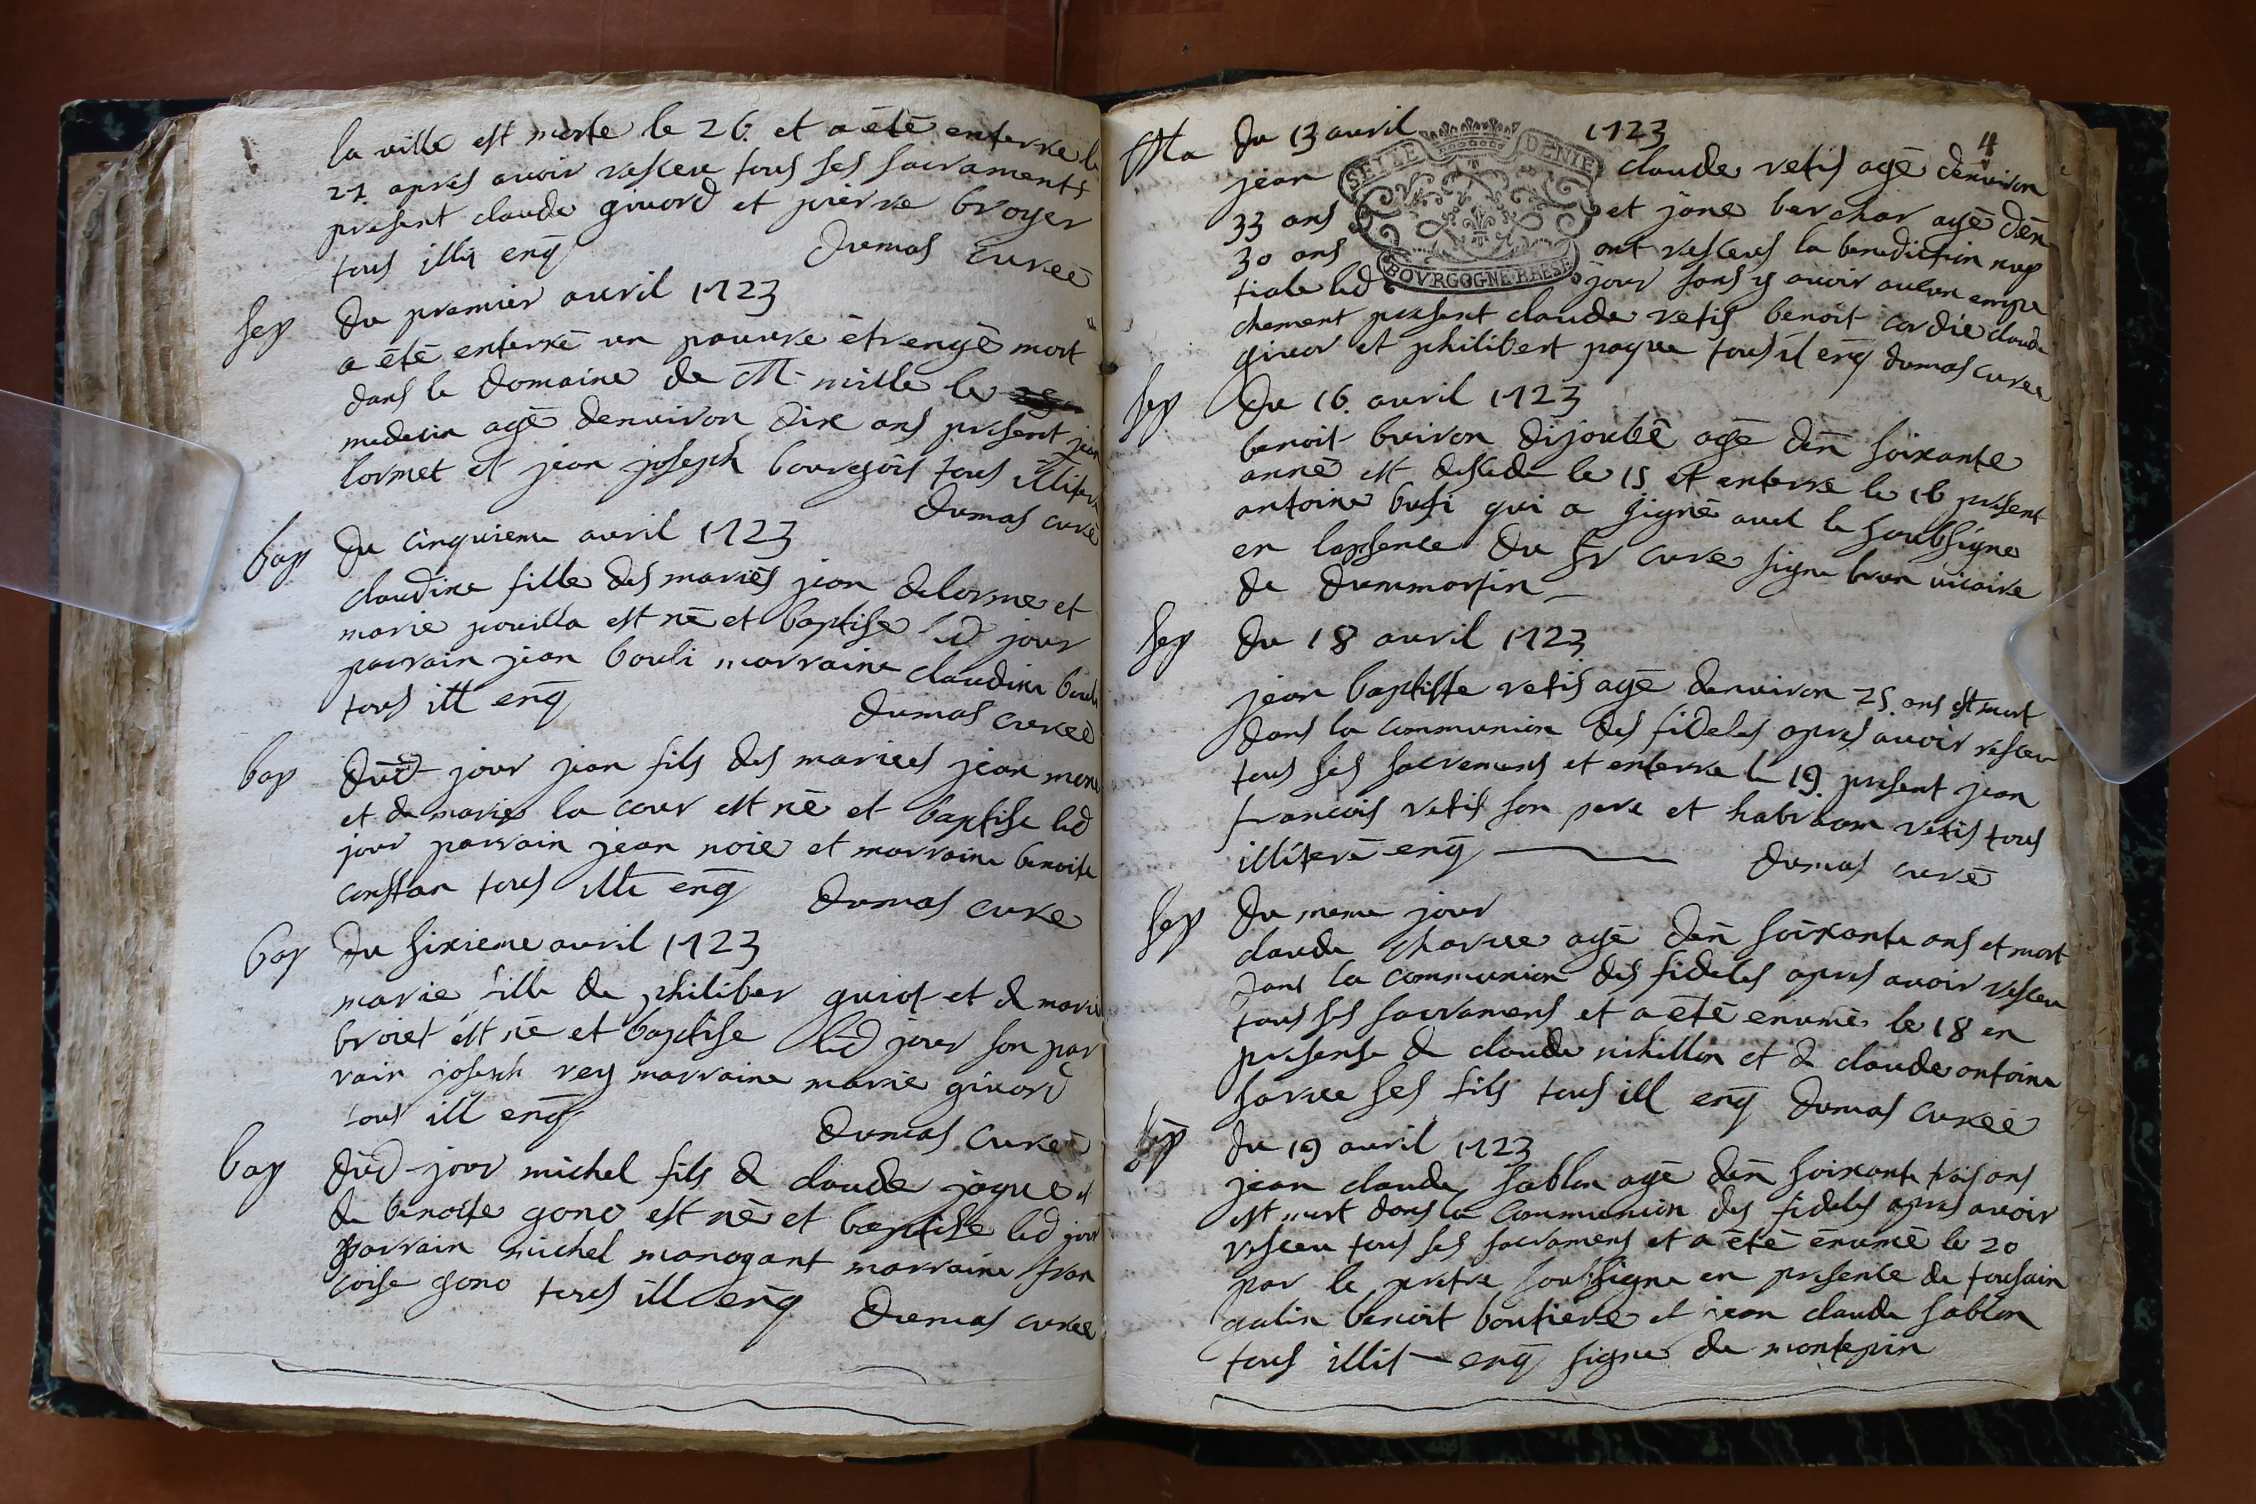 la ville est morte le 26. et a été enterree le
27 apres avoir resceu tous ses sacraments
present claude givord et pierre broyer
tous illi enq
dumas cureé
sep
du premier avril 1723
a été enterré un pauvre étrengé mort
dans le domaine de M. mille le
medecin agé denviron dix ans present jean
lormet et jean joseph bouregois tous illitere
dumas curé
bap
du cinquieme avril 1723
claudine fille des mariés jean delorme et
marie pouilla est né et baptise led jour
parrain jean bouli marraine claudine
tous ill enq
dumas cureé
bap
dud jour jean fils des mariees jean
et de marie la cour est né et baptise led
jour parrain jean noie et marraine benoite
constan tous illi enq
dumas cure
bap
du sixieme avril 1723
marie fille de philiber guiot et de marie
broiet est né et baptise led jour son par
rain joseph rey marraine marie givord
tous ill enq
dumas cureé
bap
dud jour michel fils de claude jaque et
de benoite gono est né et baptise led jour
parrain michel manogant marraine fran
coise gono tous ill enq
dumas cureé
4
Ma
du 13 avril 1723
SELLE DENIE
BOVRGOGNE BRESE
jean claude retis agé denviron
33 ans et jane berchar agé den
30 ans ont resceus la benediction nup
tiale led jour sans y avoir aucun empe
chement present claude retis benoit cordie claude
givor et philibert paque tous il enq dumas curee
sep
du 16. avril 1723
benoit buiron dijoubé agé den soixante
anné est descede le 15 et enterre le 16 present
antoine busi qui a signé avec le soubsigne
en lapsence du sr cure signe brun vicaire
de dommartin
sep
du 18 avril 1723
jean baptiste retis agé denviron 25. ans est mort
dans la communion des fideles apres avoir resceu
tous ses sacremens et enterre le 19. present jean
francois retis son pere et habraam retis tous
illiteré enq
dumas curé
sep
du meme jour
claude charue agé den soixante ans et mort
dans la communion des fideles apres avoir resceu
tous ses sacramens et a été enumé le 18 en
presense de claude michillon et de claude antoine
sarue ses fils tous ill enq dumas cureé
sep
du 19 avril 1723
jean claude sablon agé den soixante trois ans
est mort dans la communion des fideles apres avoir
resceu tous ses sacramens et a été énumé le 20
par le pretre soubsigne en presence de tousain
galin benoit boutiere et jean claude sablon
tous illit enq signe de montepin